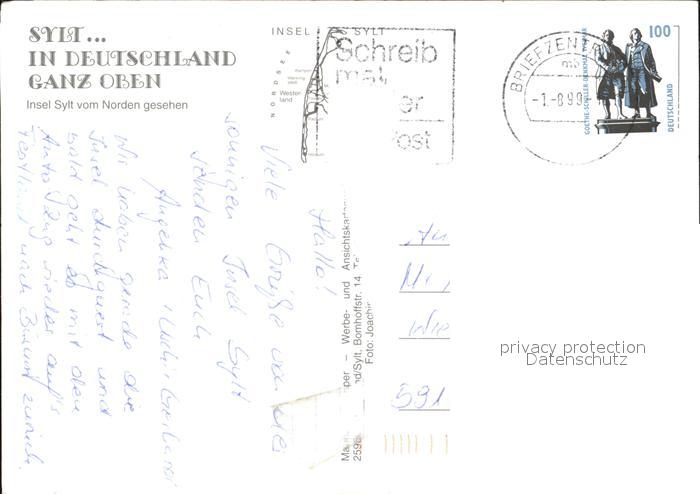 SYLT...
IN DEUTSCHLAND
GANZ OBEN
Insel Sylt vom Norden gesehen
INSEL SYLT
NORDSEE
Kampen
Wester-
land
Schreib
mal
er
ost
BRIEFZENTR
mb
-1.-8.99
100
GOETHE-SCHILLER-DENKMAL WEIMAR
DEUTSCHLAND
Hallo!
Viele Grüße von
sonnigen Insel Sylt
senden Euch
Angelika
Wir haben gerade die
Insel durchquert und
bald geht es mit den
Auto Zug wieder auf's
Festland nach zurück.
per – Werbe- und Ansichtskarten
nd/Sylt, Bomhoffstr. 14, Tel
Foto: Joachim
An
591
privacy protection
Datenschutz